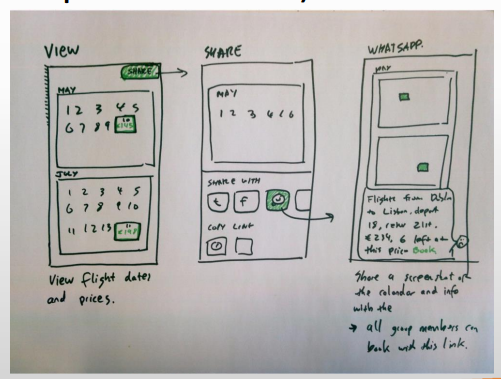 VIEW
SHARE
MAY
1 2 3 4 5
6 7 8 9 10
€145
JULY
1 2 3 4 5
6 7 8 9 10
11 12 13
View flight dates
and prices.
SHARE
MAY
1 2 3 4 5 6
SHARE WITH
t f
COPY LINK
WHATSAPP.
MAY
Flights from Dublin
to Lisbon, depart
18, return 21st.
€234, 6 left at
this price Book
Share a screenshot of
the calendar and info
with the
→ all group members can
book with this link.